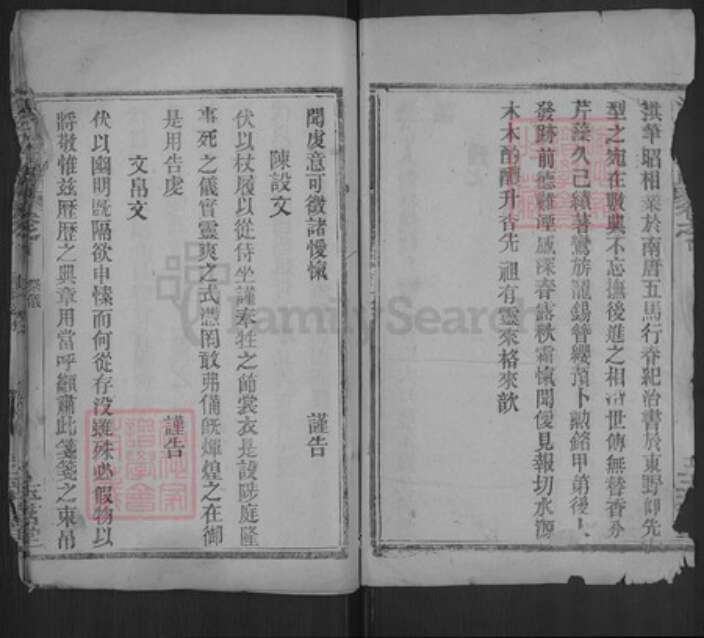 猉華昭相業於南唐五馬行春紀治書於東野仰先
型之宛在駿興不忘撫後進之相沿世傳無替香分
芹藻久已績著鴛族龍錫簪纓預卜勳銘甲第後人
發跡前德難湮感深春露秋霜愾聞僾見報切水源
木本酌醴升香先祖有靈來格來歆
聞虔意可徵諸僾愾 謹告
陳設文
伏以杖履以從侍坐謹奉牲之節裳衣是設陟庭隆
事死之儀實靈爽之式憑罔敢弗備旣煇煌之在御
是用告虔 謹告
文帛文
伏以幽明旣隔欲申愫而何從存没雖殊必假物以
將敬惟玆歷歷之典章用當呼籲肅此箋箋之束帛
祭儀
FamilySearch